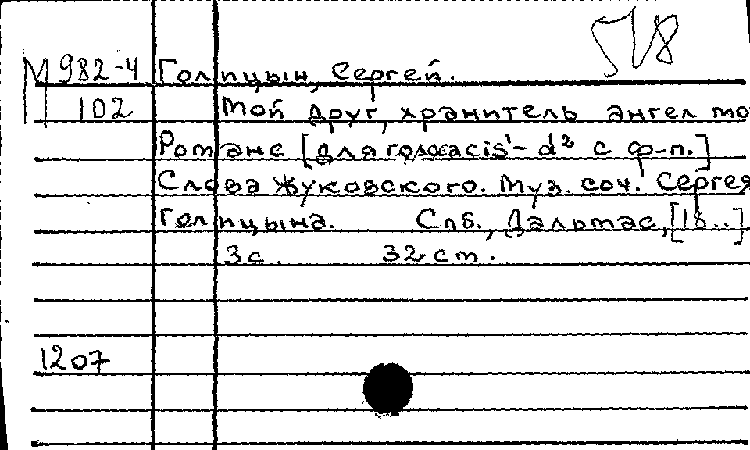 518
М 982-4 Голицын, Сергей.
102 Мой друг, хранитель ангел мо
Романс [для голоса cis¹ – d² с ф-п.]
Слова Жуковского. Муз. соч. Сергея
Голицына. Спб., Дальмас, [18..]
3 с. 32 см.
1207